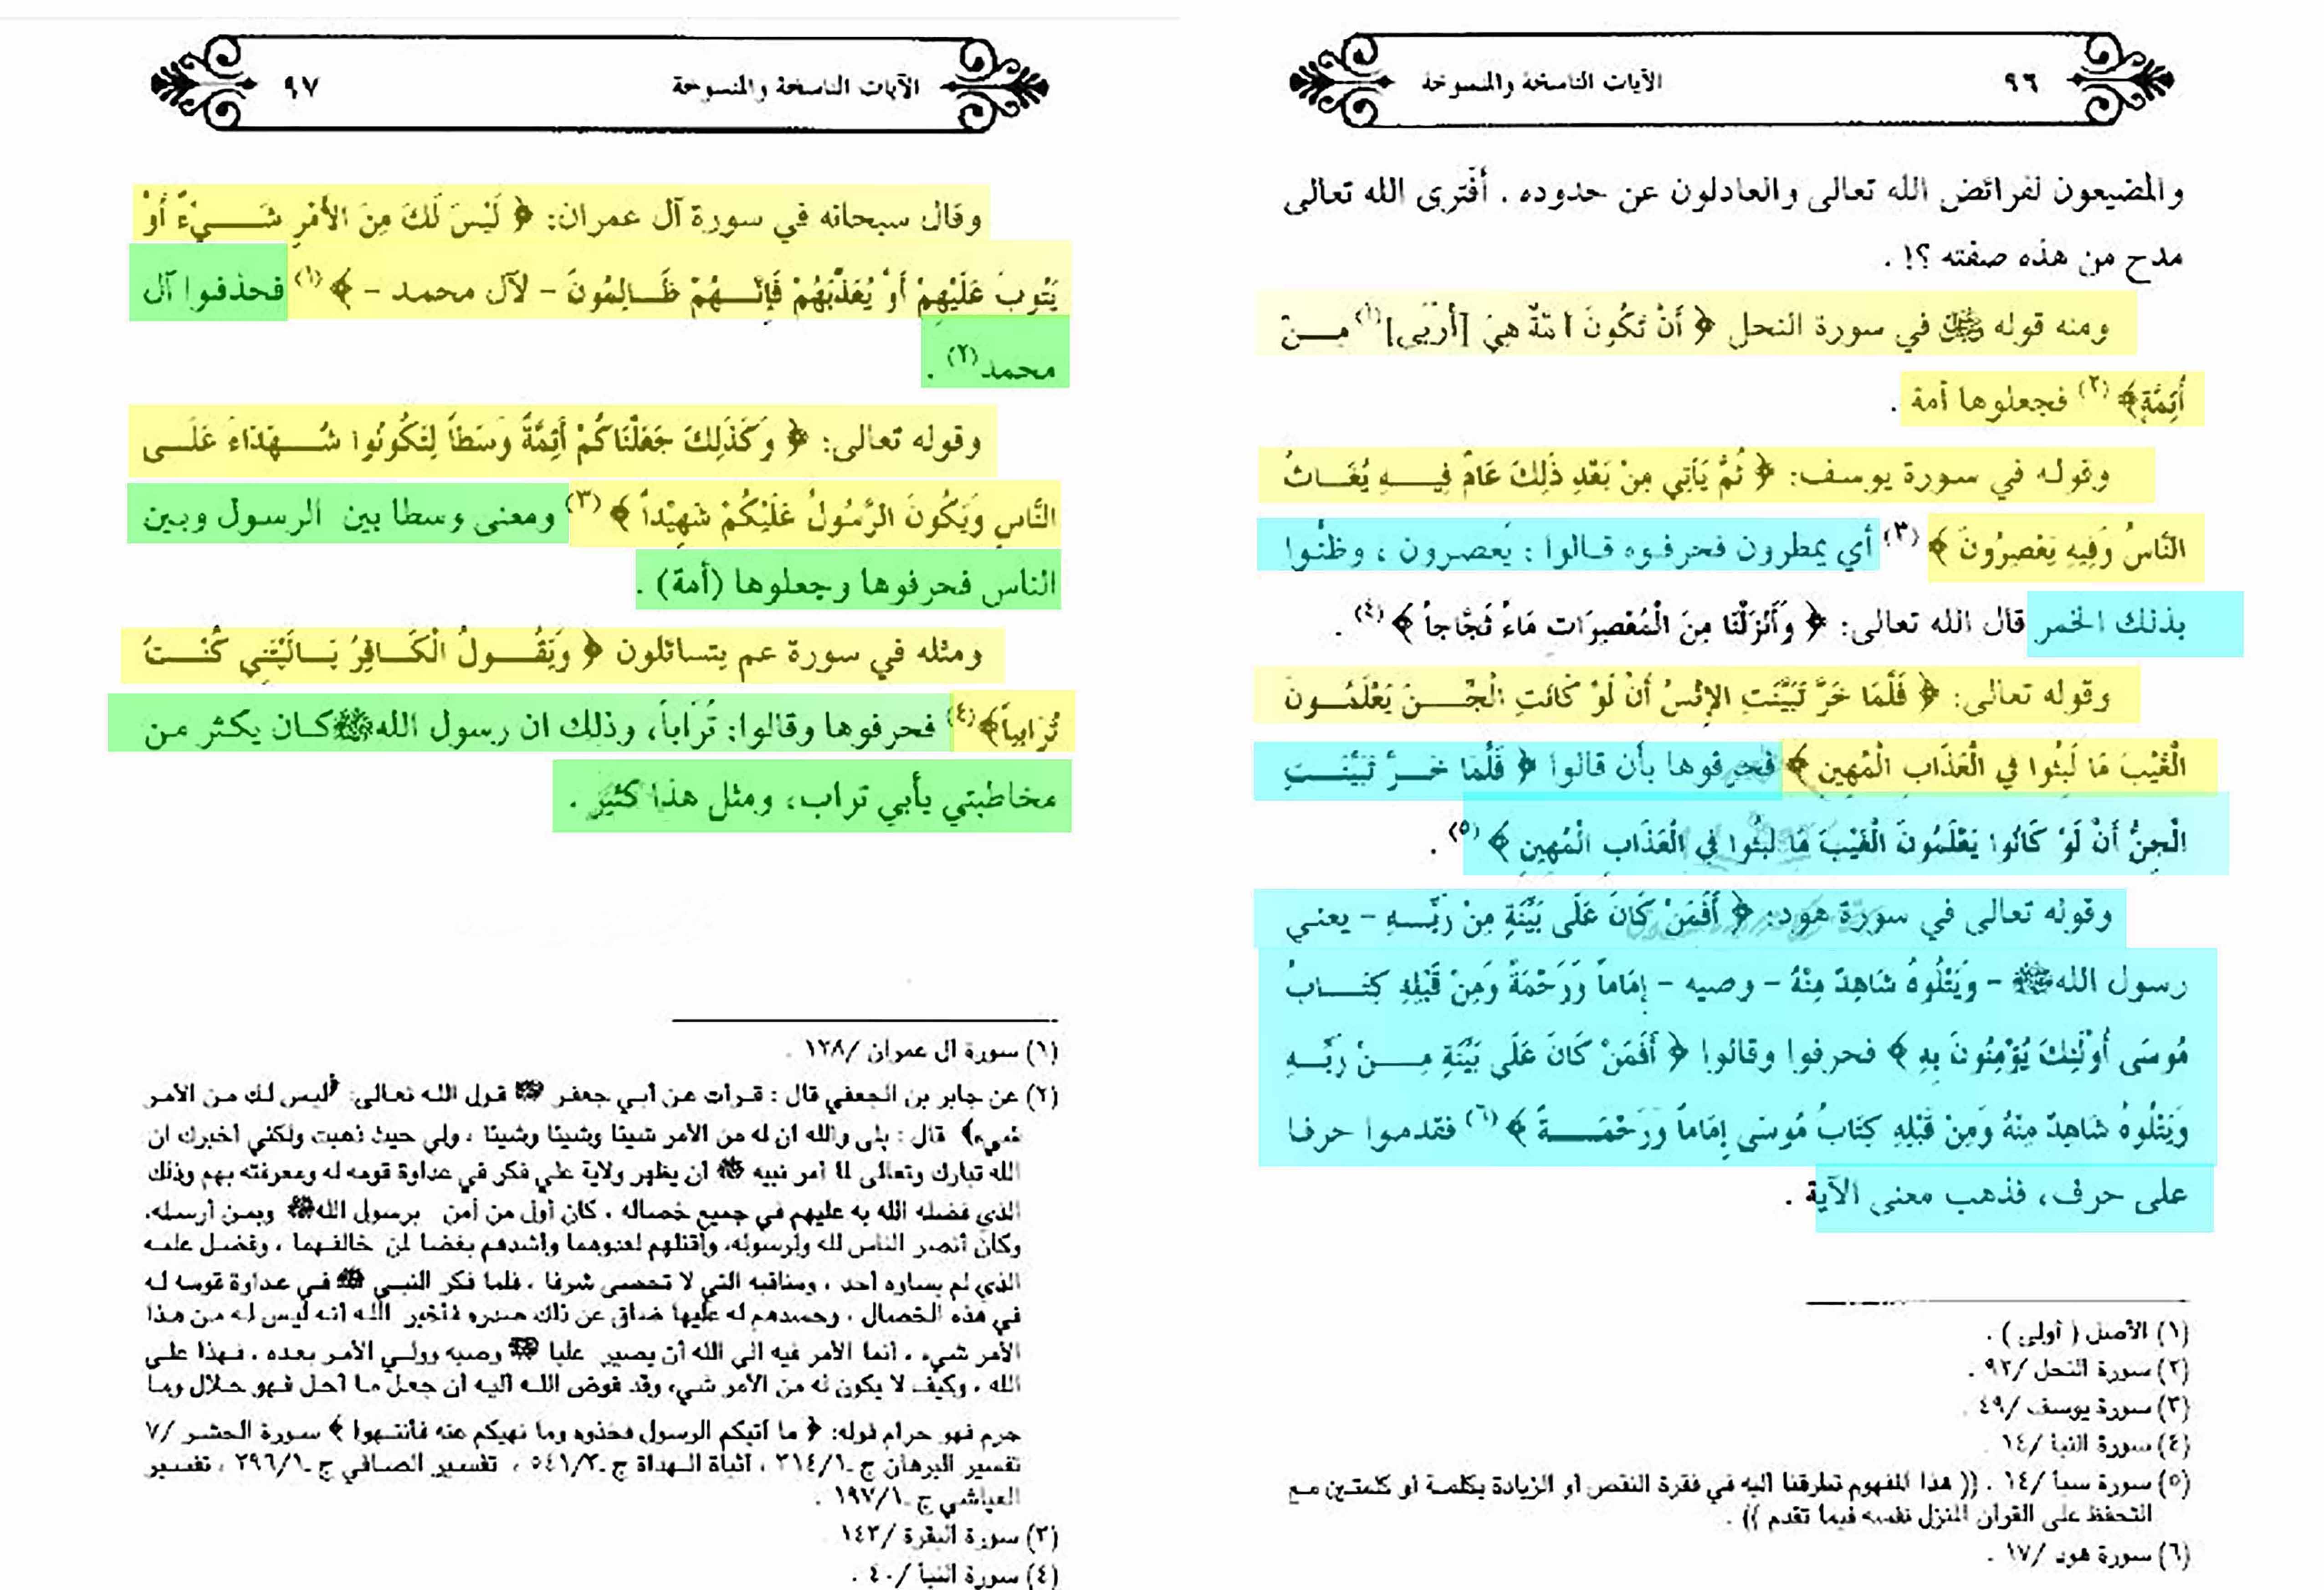 ٩٦ الآيات الناسخة والمنسوخة
والمضيعون لفرائض الله تعالى والعادلون عن حدوده . أفترى الله تعالى
مدح من هذه صفته ؟! .
ومنه قوله ﷺ في سورة النحل ﴿ أَنْ تَكُونَ أئمَّةٌ هِيَ [أرْبَى](١) مِــنْ
أَئِمَّةٍ﴾ (٢) فجعلوها أمة .
وقوله في سورة يوسف: ﴿ ثُمَّ يَأتِي مِنْ بَعْدِ ذَلِكَ عَامٌ فِيــهِ يُغَــاثُ
النَّاسُ وَفِيهِ يَعْصِرُونَ ﴾ (٣) أي يمطرون فحرفوه قالوا : يَعصرون ، وظنُّوا
بذلك الخمر قال الله تعالى: ﴿ وَأَنْزَلْنَا مِنَ الْمُعْصِرَاتِ مَاءً ثَجَّاجاً ﴾ (٤) .
وقوله تعالى: ﴿ فَلَمَّا خَرَّ تَبَيَّنَتِ الإنْسُ أَنْ لَوْ كَانَتِ الْجِــنَّ يَعْلَمُــونَ
الْغَيْبَ مَا لَبِثُوا فِي الْعَذَابِ الْمُهِينِ ﴾ فحرفوها بأن قالوا ﴿ فَلَمَّا خَــرَّ تَبَيَّنَــتِ
الْجِنُّ أَنْ لَوْ كَانُوا يَعْلَمُونَ الْغَيْبَ مَا لَبِثُوا فِي الْعَذَابِ الْمُهِينِ ﴾ (٥) .
وقوله تعالى في سورة هود: ﴿ أَفَمَنْ كَانَ عَلَى بَيِّنَةٍ مِنْ رَبِّــهِ – يعني
رسول الله ﷺ – وَيَتْلُوهُ شَاهِدٌ مِنْهُ – وصيه – إمَاماً وَرَحْمَةً وَمِنْ قَبْلِهِ كِتَــابُ
مُوسَى أُولَئِكَ يُؤْمِنُونَ بِهِ ﴾ فحرفوا وقالوا ﴿ أَفَمَنْ كَانَ عَلَى بَيِّنَةٍ مِــنْ رَبِّــهِ
وَيَتْلُوهُ شَاهِدٌ مِنْهُ وَمِنْ قَبْلِهِ كِتَابُ مُوسَى إمَاماً وَرَحْمَــةً ﴾ (٦) فقدموا حرفا
على حرف، فذهب معنى الآية .
(١) الأصل ( أولى ) .
(٢) سورة النحل /٩٢ .
(٣) سورة يوسف /٤٩ .
(٤) سورة النبأ /١٤ .
(٥) سورة سبأ /١٤ . (( هذا المفهوم تطرقنا اليه في فقرة النقص أو الزيادة بكلمة أو كلمتين مع
التحفظ على القرآن المنزل نفسه فيما تقدم )) .
(٦) سورة هود /١٧ .
الآيات الناسخة والمنسوخة ٩٧
وقال سبحانه في سورة آل عمران: ﴿ لَيْسَ لَكَ مِنَ الأَمْرِ شَــيْءٌ أَوْ
يَتُوبَ عَلَيْهِمْ أَوْ يُعَذِّبَهُمْ فَإنَّــهُمْ ظَــالِمُونَ – لآل محمد – ﴾ (١) فحذفوا آل
محمد (٢) .
وقوله تعالى: ﴿ وَكَذَلِكَ جَعَلْنَاكُمْ أَئِمَّةً وَسَطاً لِتَكُونُوا شُــهَدَاءَ عَلَــى
النَّاسِ وَيَكُونَ الرَّسُولُ عَلَيْكُمْ شَهِيْداً ﴾ (٣) ومعنى وسطا بين الرسول وبين
الناس فحرفوها وجعلوها (أمة) .
ومثله في سورة عم يتسائلون ﴿ وَيَقُــولُ الْكَــافِرُ يَــالَيْتَنِي كُنْــتُ
تُرَابياً﴾(٤) فحرفوها وقالوا: تُرَاباً، وذلك ان رسول الله ﷺ كان يكثر من
مخاطبتي بأبي تراب، ومثل هذا كثير .
(١) سورة ال عمران /١٢٨ .
(٢) عن جابر بن الجعفي قال : قرأت عن أبي جعفر قول الله تعالى: ﴿ليس لك من الأمر
شيء﴾ قال : بلى والله ان له من الأمر شيئا وشيئا وشيئا ، ولي حيث ذهبت ولكني أخبرك ان
الله تبارك وتعالى لما أمر نبيه ﷺ أن يظهر ولاية علي فكر في عداوة قومه له ومعرفته بهم وذلك
الذي فضله الله به عليهم في جميع خصاله ، كان أول من أمن برسول الله ﷺ وبمن أرسله،
وكان أنصر الناس لله ولرسوله، واقتلهم لعدوهما واشدهم بغضا لمن خالفهما ، وفضل علمه
الذي لم يساوه أحد ، ومناقبه التي لا تحصى شرفا ، فلما فكر النبي ﷺ في عداوة قومه له
في هذه الخصال ، وحسدهم له عليها ضاق عن ذلك صدره فأخبر الله انه ليس له من هذا
الأمر شيء ، أنما الأمر فيه الى الله أن يصير عليا وصيه وولي الأمر بعده ، فهذا على
الله ، وكيف لا يكون له من الأمر شيء وقد فوض الله اليه أن جعل ما أحل فهو حلال وما
حرم فهو حرام قوله: ﴿ ما أتيكم الرسول فخذوه وما نهيكم عنه فأنتهوا ﴾ سورة الحشر /٧
تفسير البرهان ج ٣١٤/١ ، أثباة الهداة ج ٥٤١/٣ ، تفسير الصافي ج ٢٩٦/١ ، تفسير
العياشي ج ١٩٧/١ .
(٣) سورة البقرة /١٤٣
(٤) سورة النبأ /٤٠ .